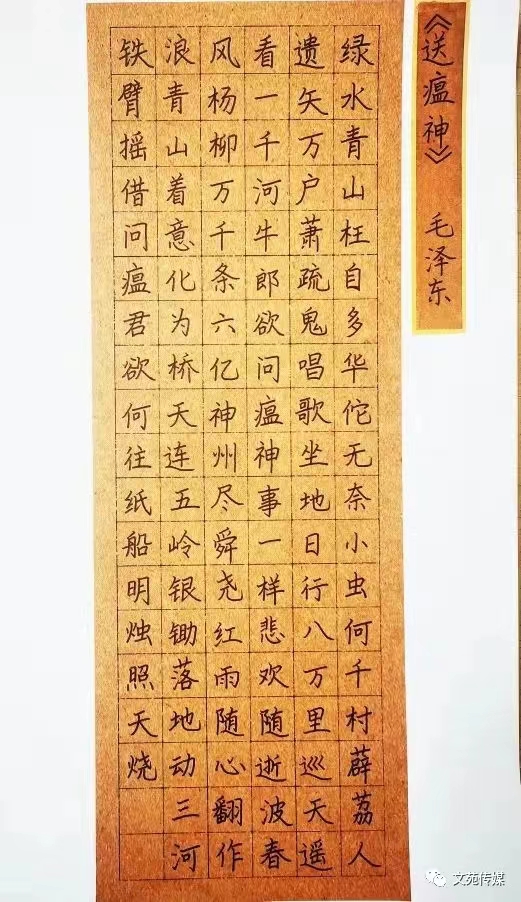 《送瘟神》 毛泽东
绿水青山枉自多华佗无奈小虫何千村薜荔人
遗矢万户萧疏鬼唱歌坐地日行八万里巡天遥
看一千河牛郎欲问瘟神事一样悲欢随逝波春
风杨柳万千条六亿神州尽舜尧红雨随心翻作
浪青山着意化为桥天连五岭银锄落地动三河
铁臂摇借问瘟君欲何往纸船明烛照天烧
文苑传媒